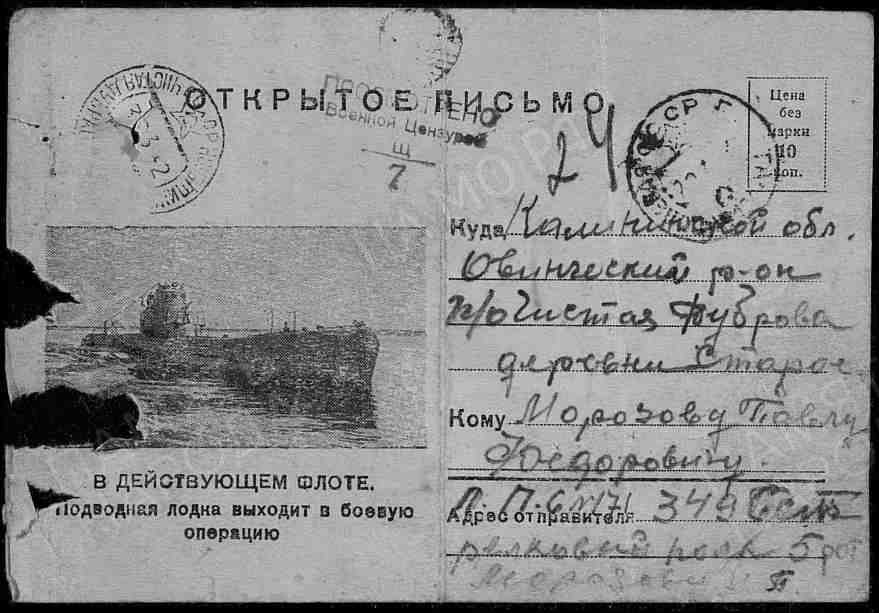 ОТКРЫТОЕ ПИСЬМО
ПРОСМОТРЕНО
Военной Цензурой
Щ
7
24
Цена
без
марки
10
коп.
ЧИСТАЯ ДУБРОВА
3 42
СССР
Куда Калининской обл.
Овинческий р-он
п/о Чистая Дуброва
деревни Старое
Кому Морозову Павлу
Федоровичу.
В ДЕЙСТВУЮЩЕМ ФЛОТЕ.
Подводная лодка выходит в боевую
операцию
Адрес отправителя 349 Ст
релковый полк 5 рот
Морозов